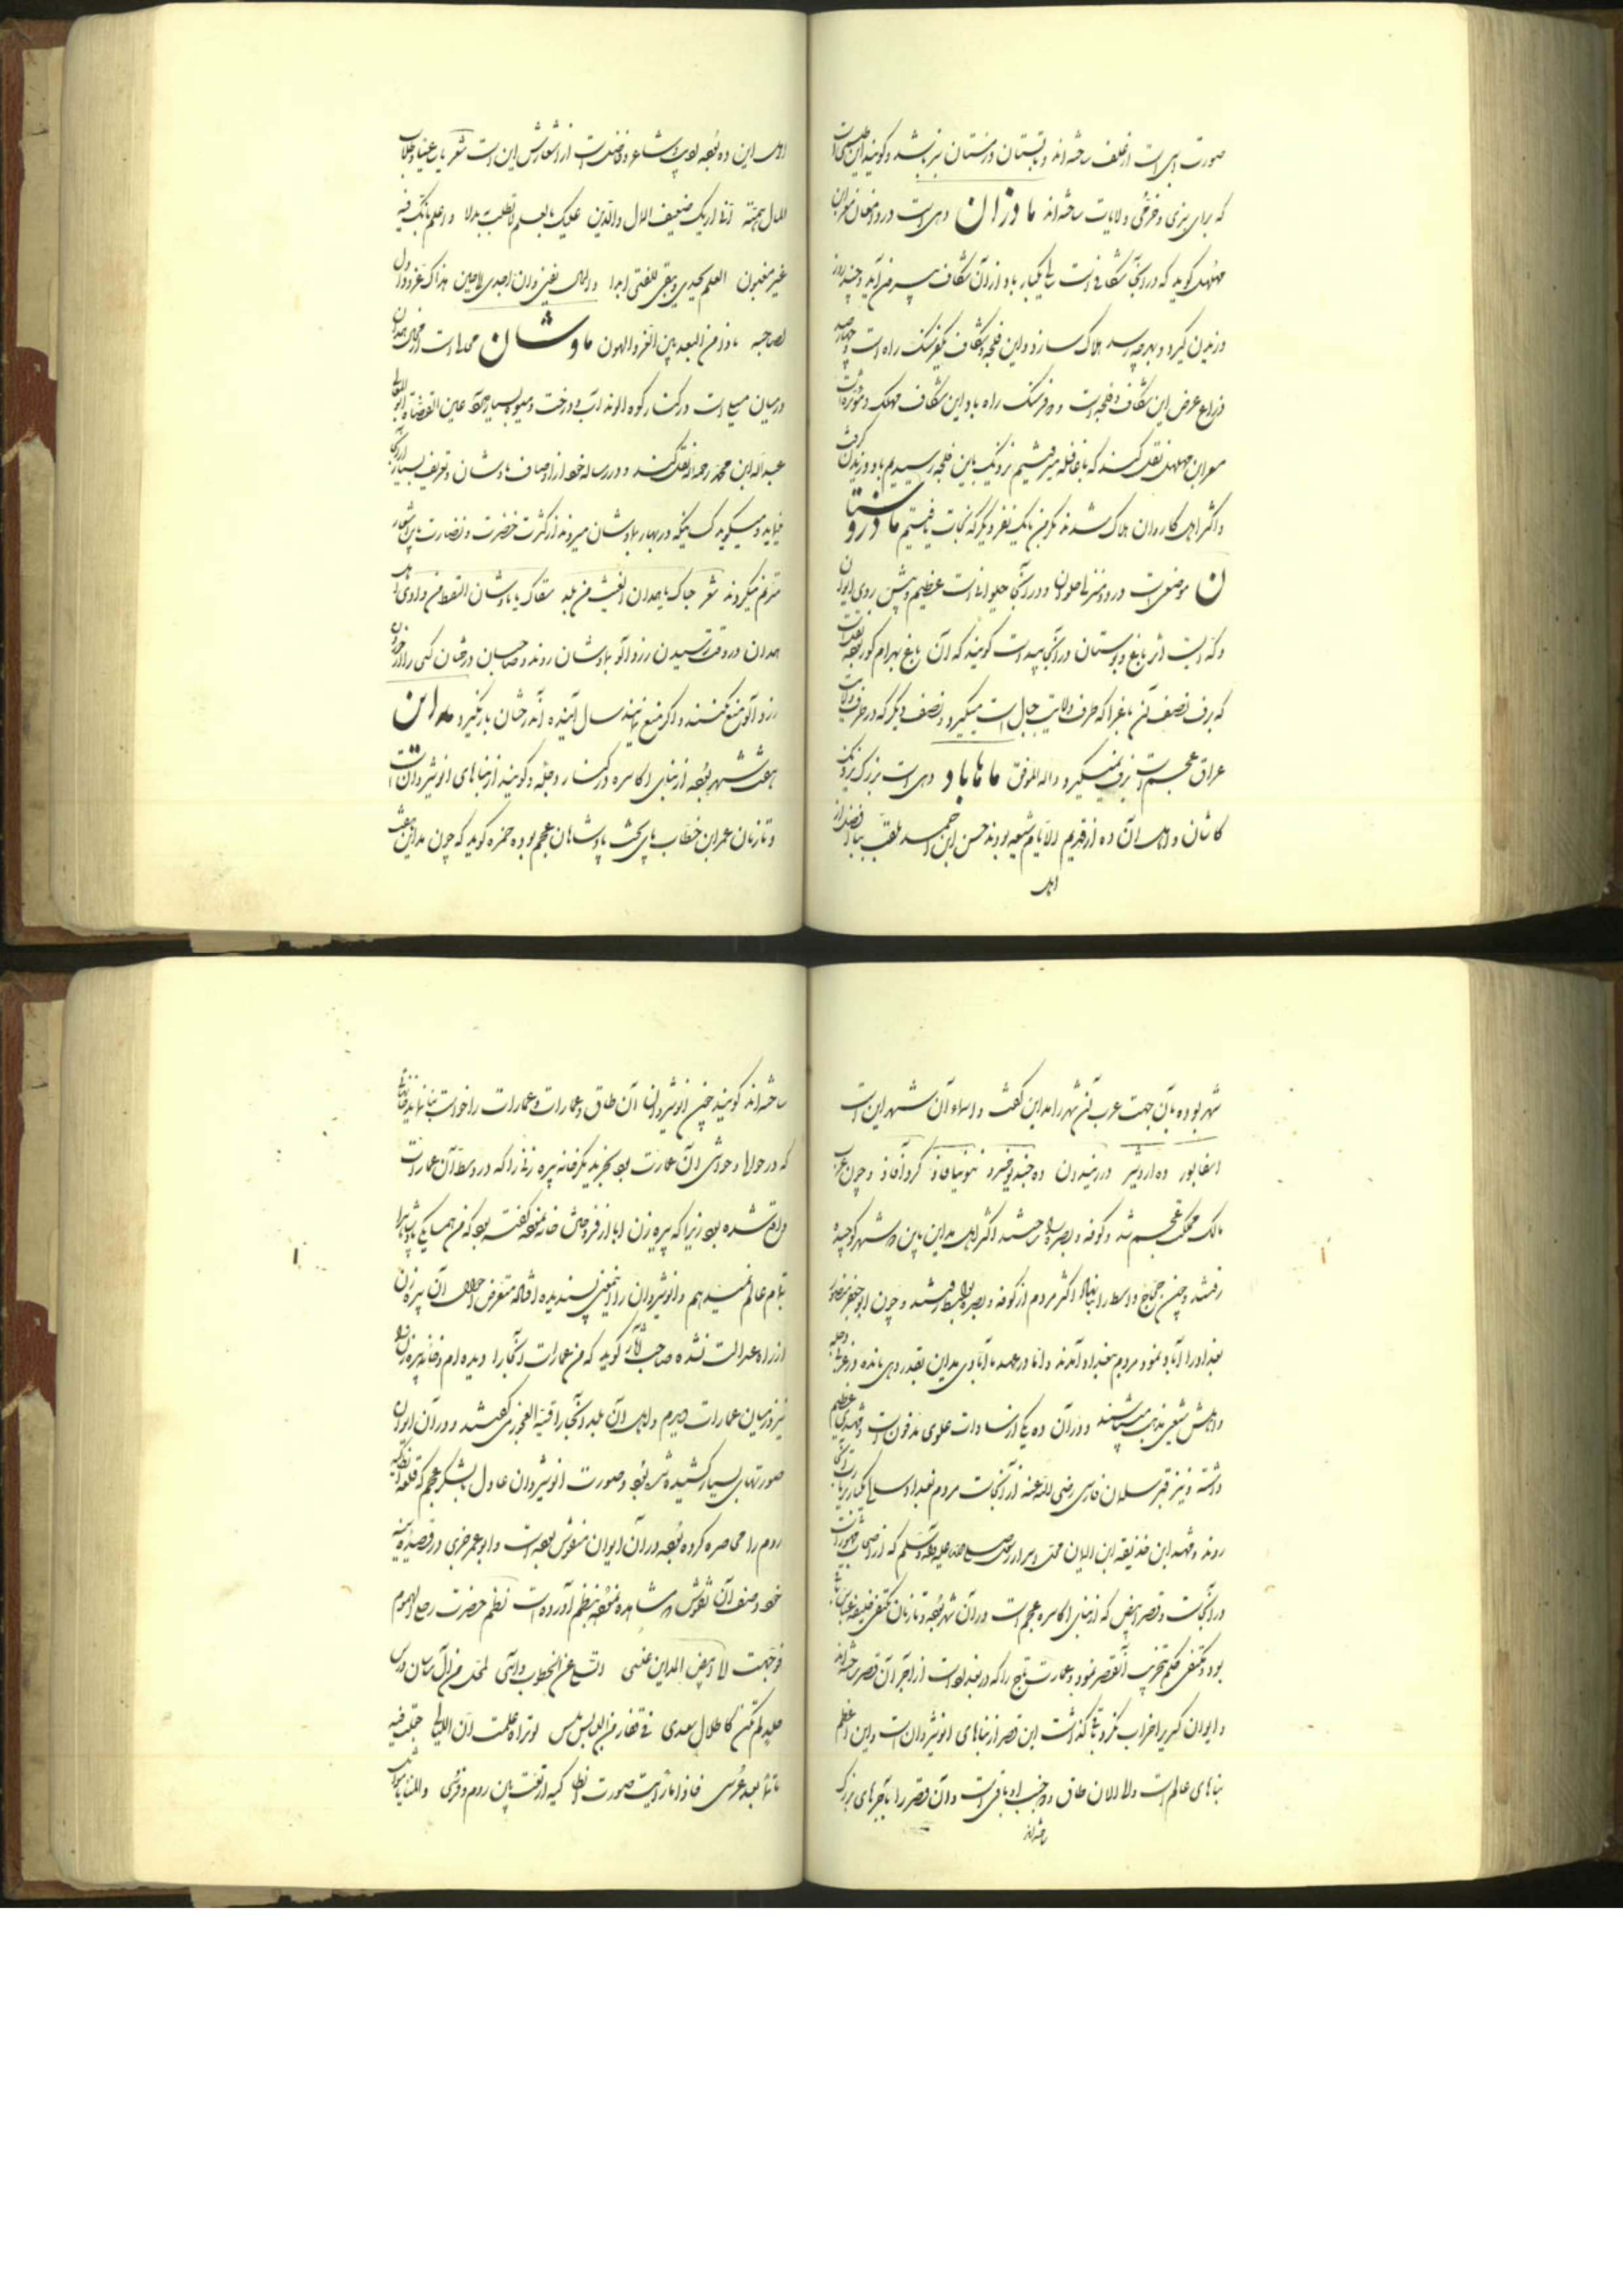 صورت اسبی است از علف ساخته‌اند و تابستان و زمستان سبز باشد و گویند این طلسمی است
که برای سبزی و خرمی ولایات ساخته‌اند ماوزان دهی است در
مهلهل گوید که در آنجا شکافی است سالی یکبار باد از آن شکاف بیرون آید و چند روز
وزیدن گیرد و بهرچه رسد هلاک سازد و این فلجه و شکاف یکفرسنگ راه است و چهارصد
ذراع عرض این شکاف و فلجه است و دو فرسنگ راه باد این شکاف مهلک و موثر است
مسعر ابن مهلهل نقل کند که با قافله میرفتیم نزدیک باین فلجه رسیدیم باد وزیدن گرفت
و اکثر اهل کاروان هلاک شدند مگر من با یک نفر دیگر که نجات یافتیم ماذروستا
ن موضعی است در دو منزلی حلوان و در آنجا ایوانی است عظیم و پیش روی ایوان
دکه است اثر باغ و بوستان در آنجا پیدا است گویند که آن باغ بهرام گور بوده است
که برف نصف آن باغ را که طرف ولایت جبال است میگیرد و نصف دیگر که در طرف ولایت
عراق عجم است برف نمیگیرد والله الموفق ماهاباد دهی است بزرگ نزدیک
کاشان و اهل آن ده از قدیم الایام شیعه بودند حسن ابن احمد ملقب ببافضل از
اهل
اهل این ده بوده ادیب و شاعر و فاضل است از اشعارش این است شعر
المال همته علیک بالعلم لا تطلب بدلا و اعلم بانک فیه
غیر مغبون العلم یجدی و یبقی للفتی ابدا والمال یفنی و ان اجدی لاحین هذاک عز و ذا ذل
لصاحبه ماذا من البعد بین العز و الهون ماوشان محلی است از نواحی همدان
در میان است در کنار کوه الوند آب و درخت و میوه بسیار دارد عین القضات ابوالمعالی
عبدالله ابن محمد رحمه الله نقل کند و در رساله خود از اوصاف ماوشان و تعریف بسیار از آنجا
مینماید و میگوید کسانیکه در بهار بماوشان میروند از کثرت خضرت و نضارت باین شعر
مترنم میگردند شعر حیاک یا همدان الغیث من بلد سقاک یا ماوشان القطر من وادی اهل
همدان در وقت رسیدن زردآلو بماوشان روند و صاحبان درختان کسی را از خوردن
زردآلو منع نکنند و اگر منع نمایند سال آینده آن درختان بار نگیرد مداین
هفت شهر بوده از بنای اکاسره در کنار دجله و گویند از بناهای انوشیروان است
و تا زمان عمر ابن خطاب پای تخت پادشاهان عجم بوده حمزه گوید که چون مداین هفت
شهر بوده بآن جهت عرب آن شهر را مداین گفت و اسماء آن شهر این است
اسفابور ده اردشیر درزنیدون ده جندیوخسرو نونیافاذ کردآفاذ و چون عرب
مالک مملکت عجم شد و کوفه و بصره را ساختند اکثر اهل مداین باین دو شهر کوچیده
رفتند و چون حجاج واسط را بنا اکثر مردم از کوفه و بصره بواسط رفتند و چون ابوجعفر منصور
بغداد را آباد نمود مردم ببغداد آمدند و اما در عهد ما آبادی مداین بقدر دهی مانده در غربی دجله
و اهلش شیعی مذهب میباشند و در آن ده یکی از سادات علوی مدفون است و مشهدی عظیم
داشته و نیز قبر سلمان فارسی رضی الله عنه در آنجاست مردم بغداد سالی یکبار بزیارت آنجا
روند و مشهد ابن حذیفه ابن الیمان صلی الله علیه و آله و سلم که از اصحاب
در آنجاست و قصر ابیض که از بنای اکاسره عجم است در آن شهر بوده و تا زمان مکتفی خلیفه عباسی
بود و مکتفی حکم بتخریب آن قصر نمود و عمارت تاج را که در بغداد است از آجر آن قصر ساخته‌اند
و ایوان کسری را خراب نکرد و باقی گذاشت این قصر از بناهای انوشیروان است و این اعظم
بناهای عالم است و الی الآن طاق و دو جنب او باقی است و آن قصر را با آجرهای بزرگ
ساخته‌اند
ساخته‌اند گویند چون انوشیروان آن طاق و عمارات را خواست بنا نماید
که در حوالی و حواشی آن عمارت بود بخرید مگر خانه پیره زنی را که در وسط آن عمارات
واقع شده بود زیرا که پیره زن ابا از فروختن خانه نموده گفته بود که من همسایگی پادشاه را
بتمام عالم نمیدهم و انوشیروان را این معنی پسندیده افتاد متعرض احوال آن پیره زن
از راه عدالت نشده صاحب آثار گوید که من عمارات آنجا را دیده‌ام و خانه پیره زن را
نیز در میان عمارات دیدم و اهل آن بلد آنجا را قبة العجوز میگفتند و در آن ایوان
صورتهای بسیار کشیده شده بود و صورت انوشیروان عادل با لشکر عجم که قلعه انطاکیه
روم را محاصره کرده بوده در آن ایوان منقوش بوده است و ابوعمر بحتری در قصیده سینیه
خود وصف آن نقوش و مشاهده نموده بنظم آورده است نظم حضرت رحلی الهموم
فوجهت الی ابیض المداین عنسی اتسلی عن الخطوب و آسی لمحل من آل ساسان درس
حلل لم تکن کاطلال سعدی فی قفار من البسابس ملس لو تراه علمت ان اللیالی جعلت فیه
ماتما بعد عرس فاذا ما رایت صورت انطاکیه ارتعت بین روم و فرس والمنایا مواثل